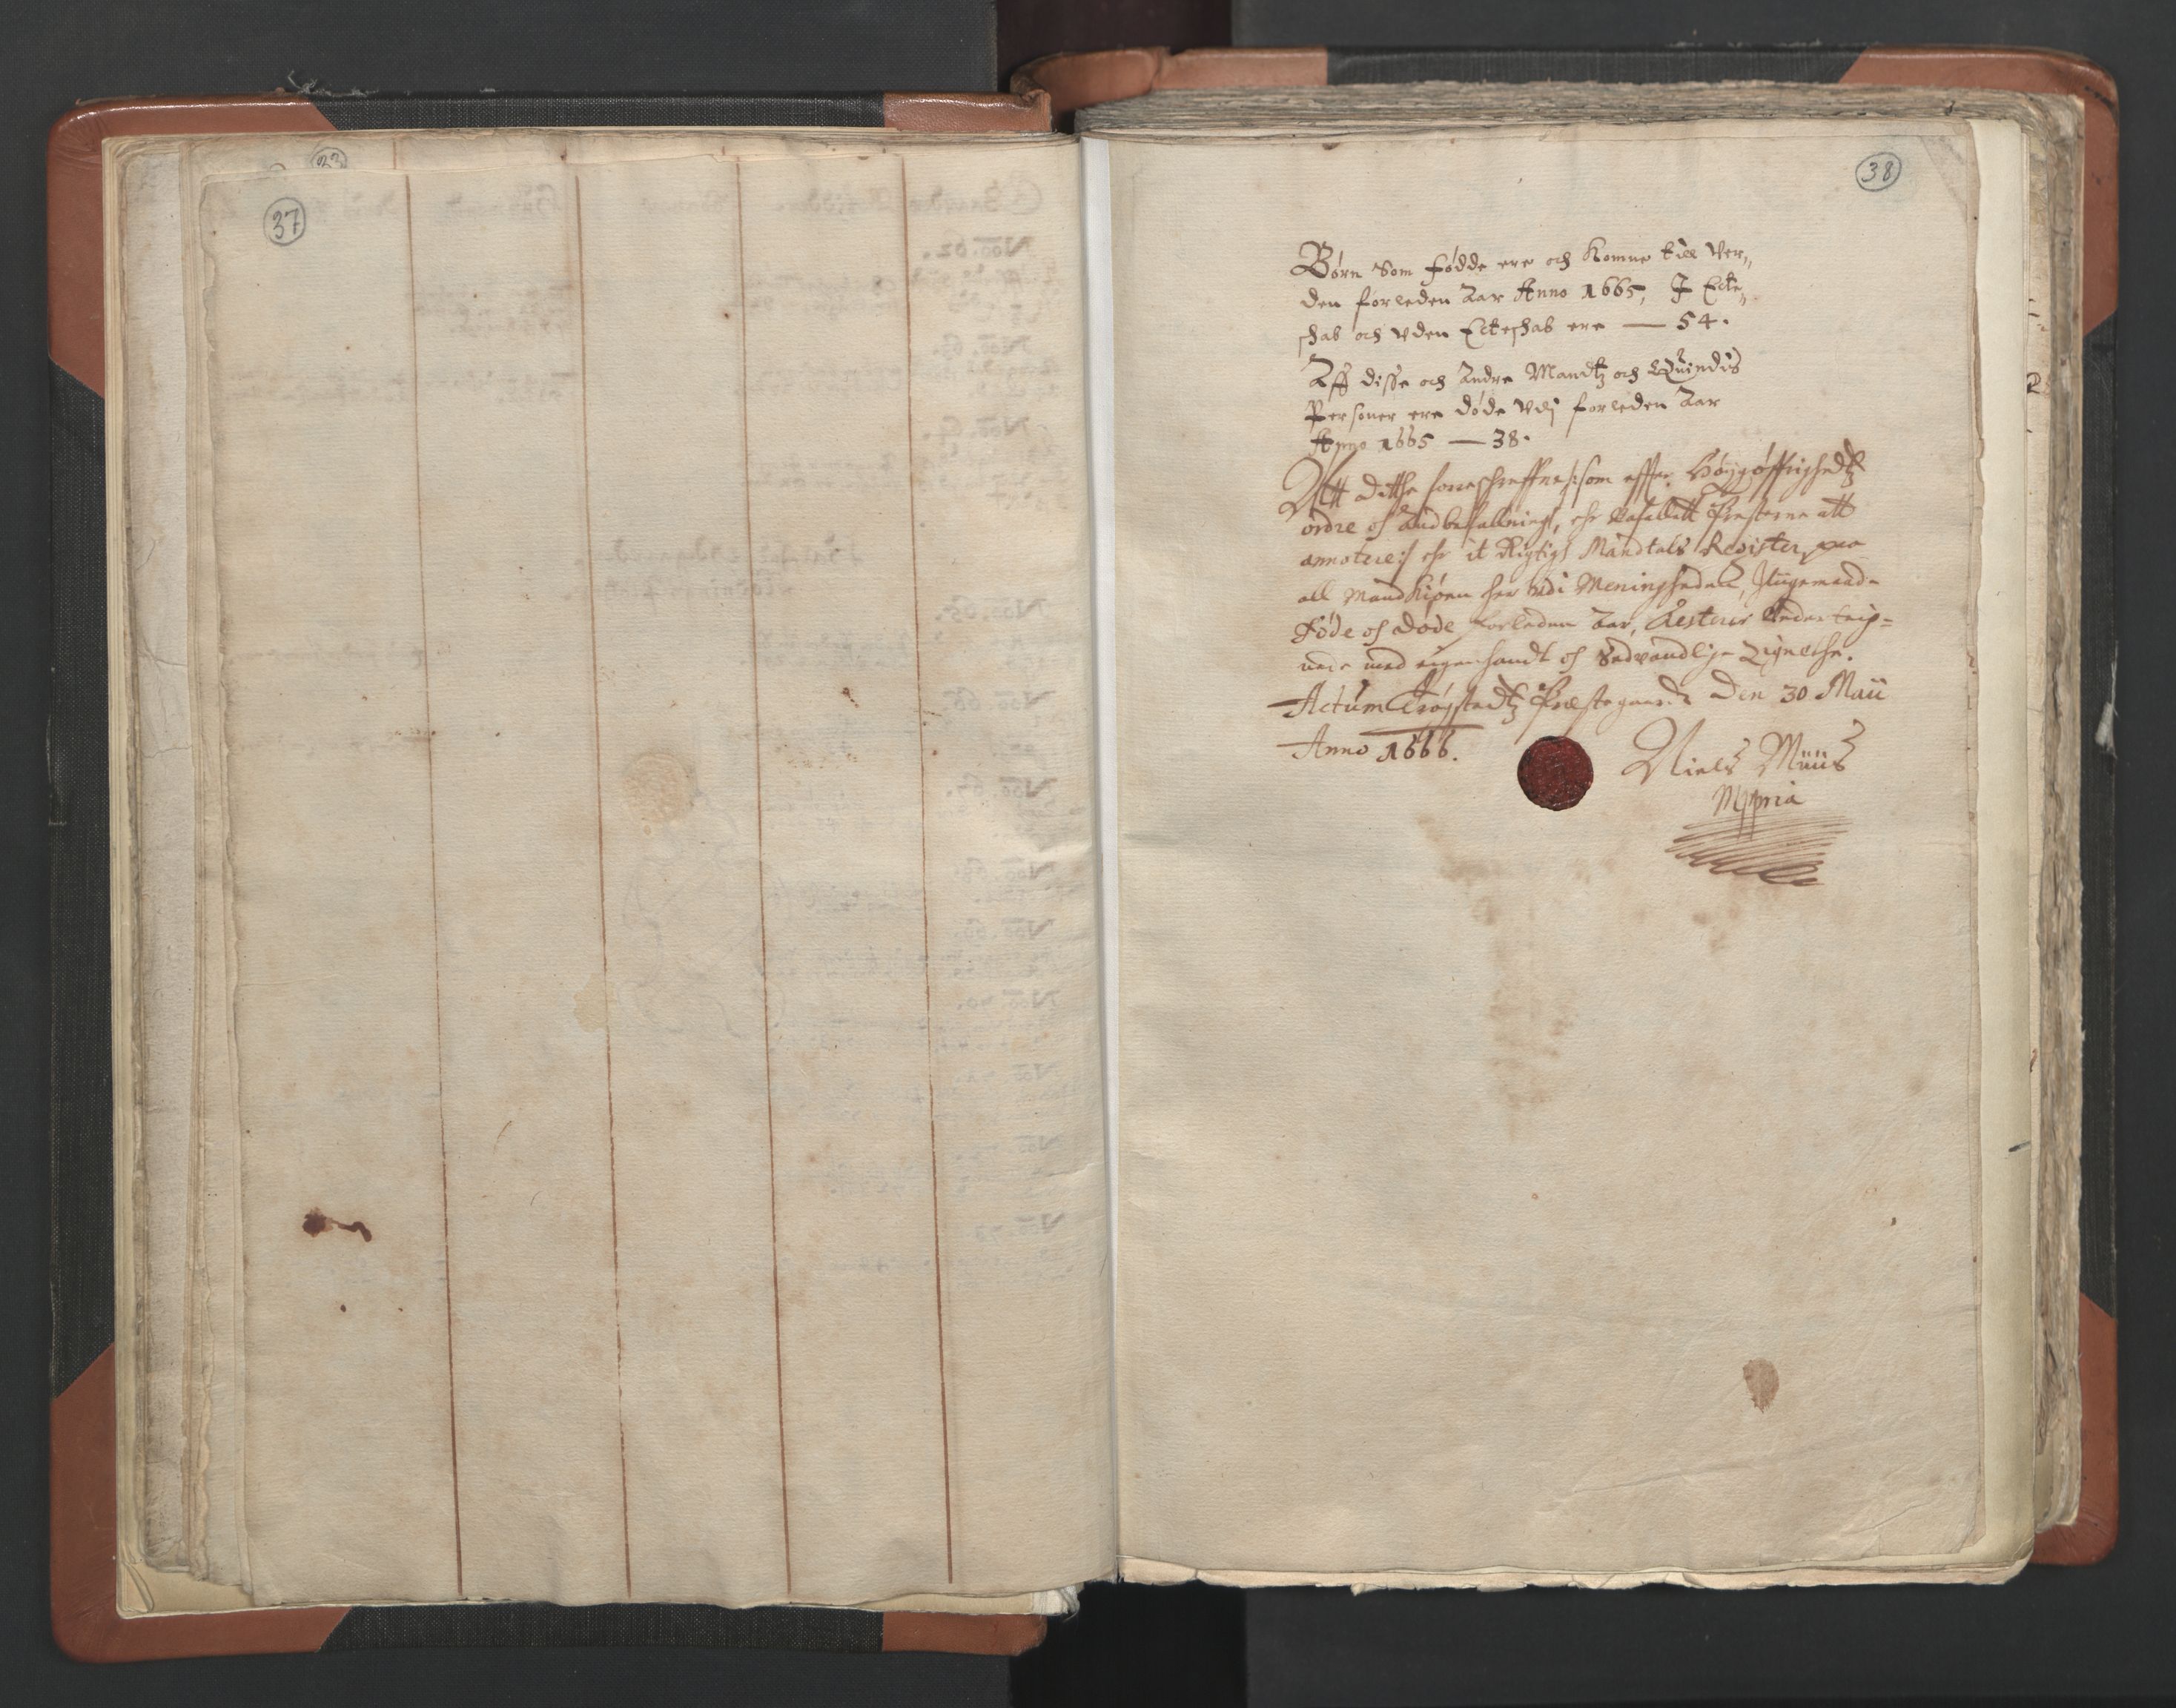 33
37
38
Børn Som fødde ere och komne till Ver„
den forleden Aar Anno 1665, J Ecte„
schab och vden Ecteschab ere — 54.
Aff disse och Andre Mandtz och Quindis
Personer ere døde vdj forleden Aar
Anno 1665 — 38.
Att ditthe foreschreffne /: som effter Høyøffrighedtz
ordre och andbefallning, er befallett Presterne att
annotere :/ er it Rigtigt Mandtals Register, paa
all Mandkiøen her udi Meningheden, Jligemaade
Føde och døde forleden Aar, Testerer Underteig=
nede med egenhandt och Sedvandlige Zignethe.
Actum Trøgstadtz Præstegaard den 30 Maii
Anno 1666.
Niels Müüs
Mppria